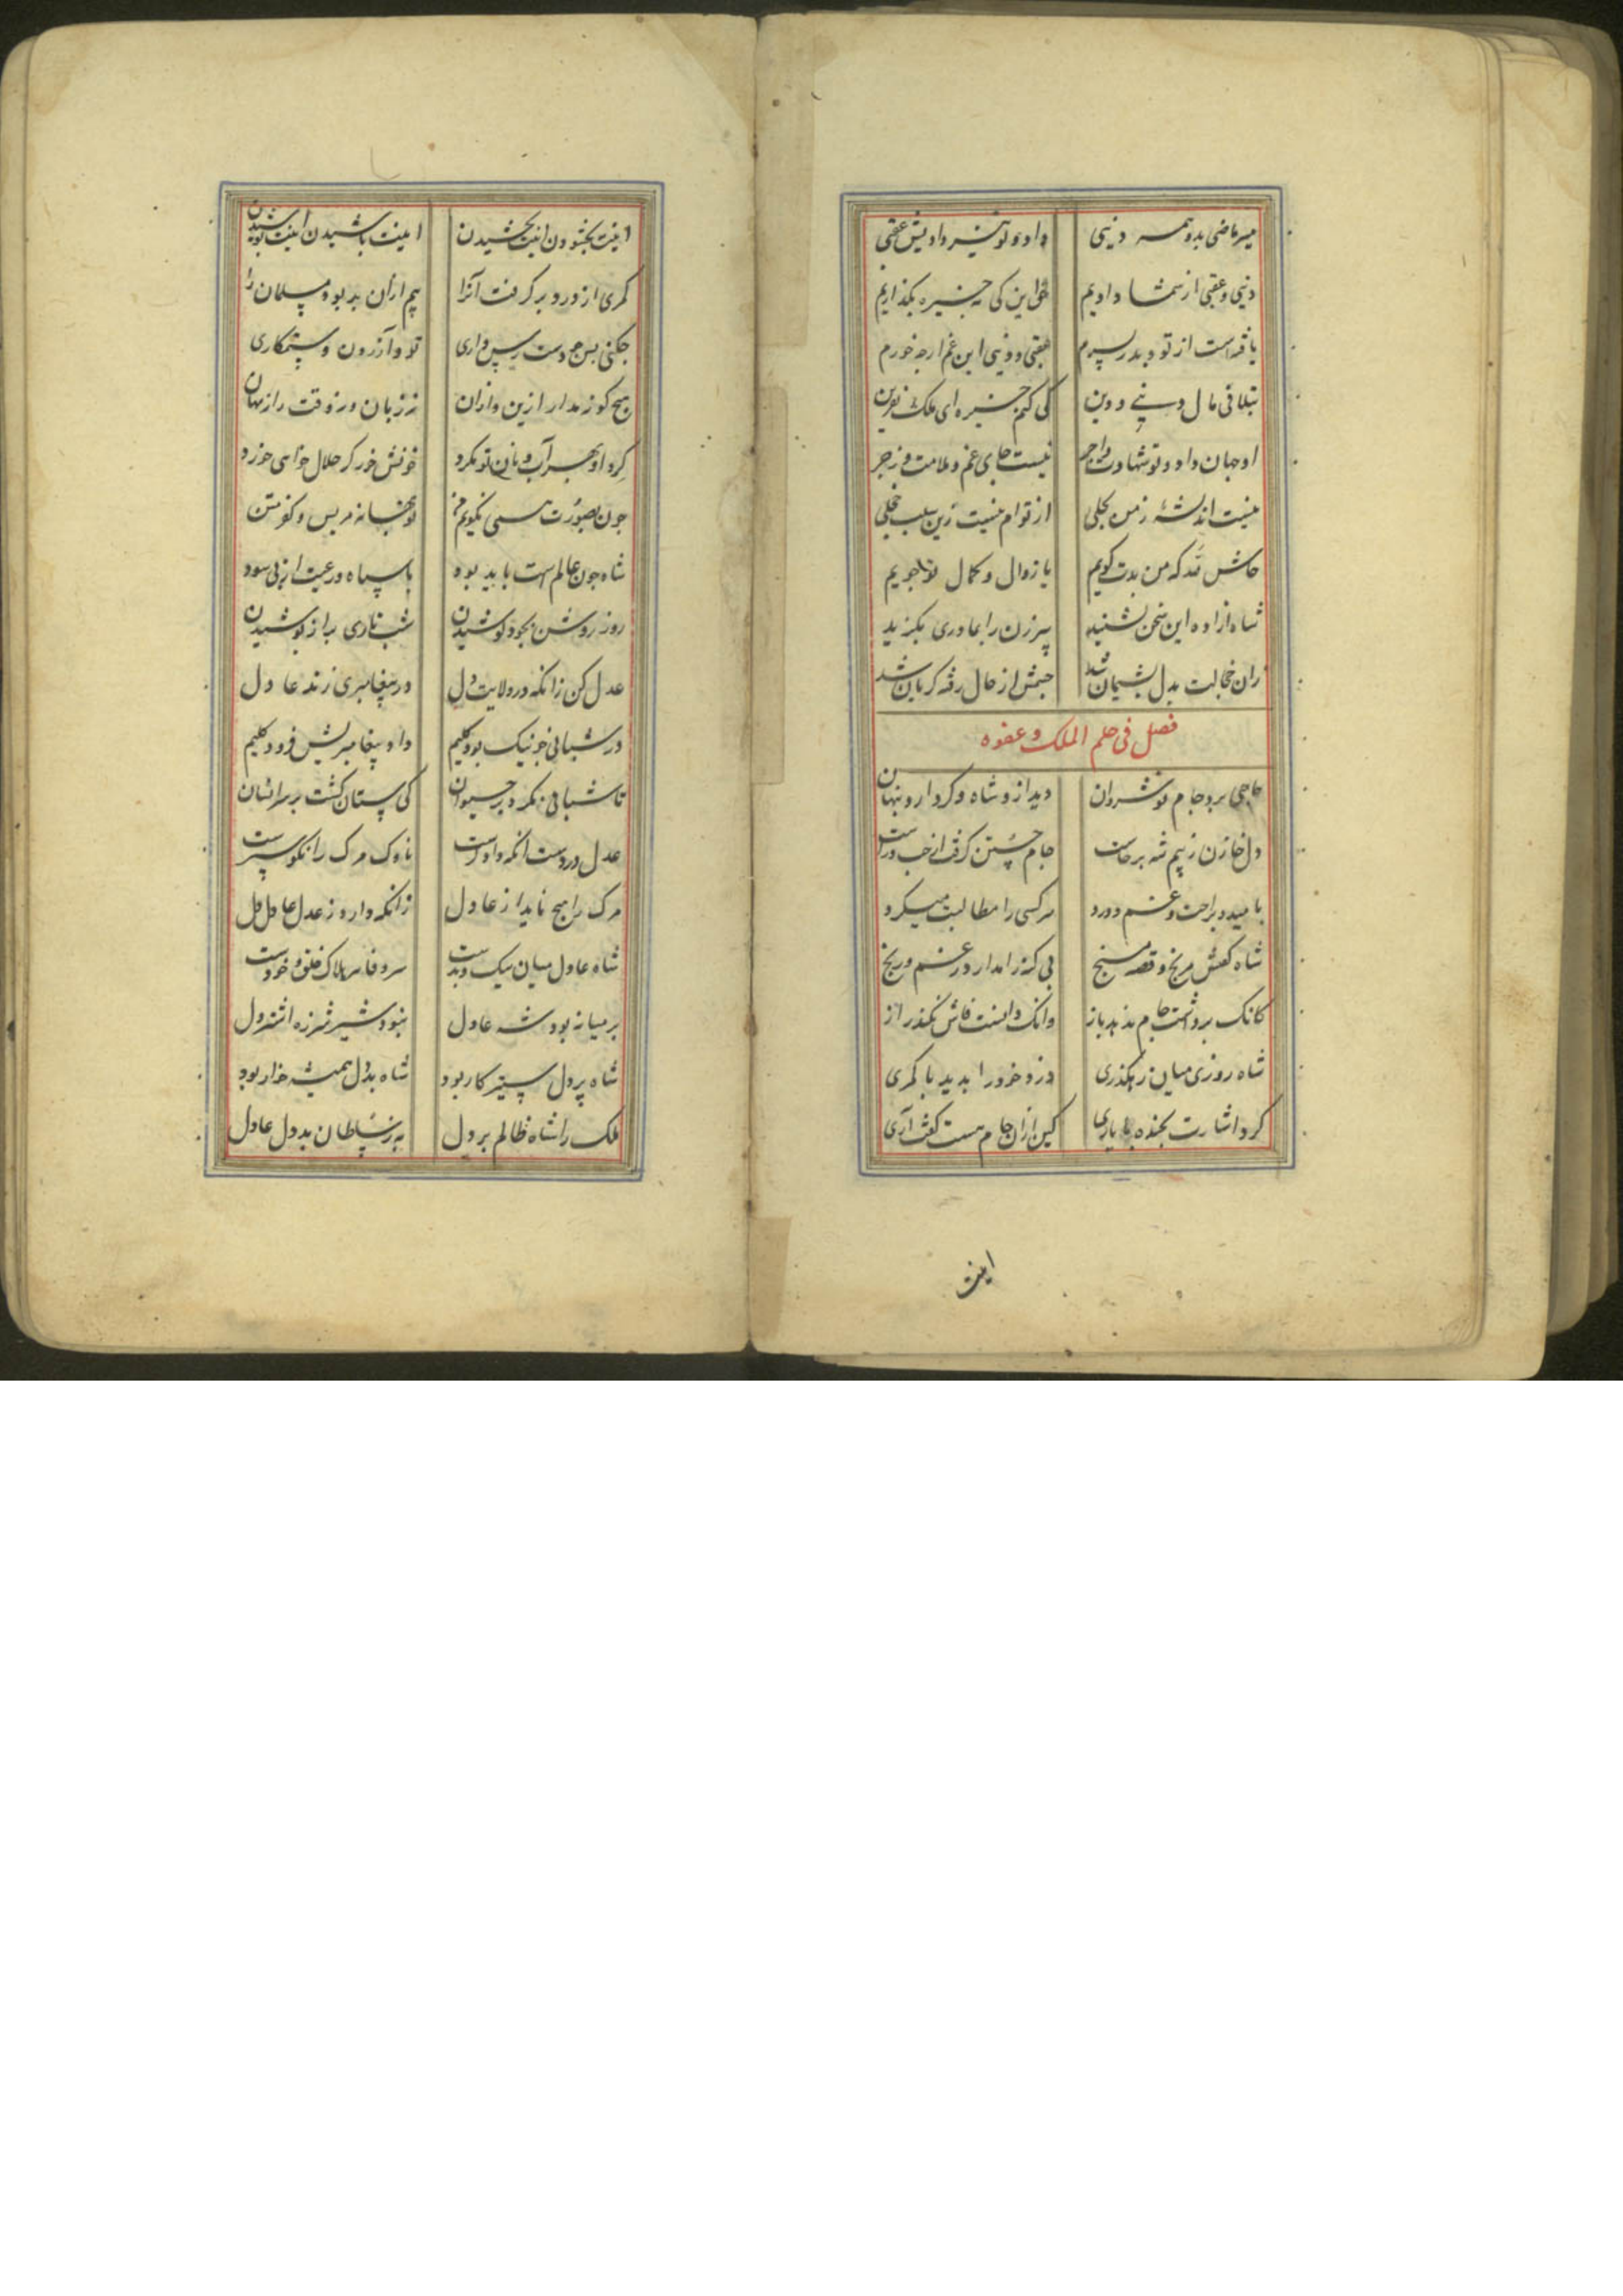 میر ماضی بدو همه دنیی داد و تو نیز دادیش عقبی
دنیی و عقبی از شما دادیم حق این کی چیره بگذاریم
یافته است از تو و پدر پسرم عقبی و دنیی این غم ار چه خورم
بتلافی مال دنیی و دین کی کنم خیره ای ملک نفرین
او جهان داد و تو شهادت و اجر نیست جای غم و ملامت و زجر
نیست اندیشهٔ ز من بحلی از توام نیست زین سبب خجلی
حاش لله که من بدت گویم یا زوال و کمال تو جویم
شاه ازاده این سخن بشنید پیر زن را بمادری بگزید
زان خجالت بدل پشیمان شد چشمش از حال رفته گریان شد
فصل فی حلم الملک و عفوه
حاجبی برد جام نوشروان دید ازو شاه و کرد ازو پنهان
دل خازن ز بیم شه برخاست جام جستن گرفت از چپ و راست
با امید و براحت و غم و درد هر کسی را مطالبت میکرد
شاه گفتش مرنج و قصه مسنج بی گنه را مدار در غم و رنج
کانک برداشت جام ندهد باز وانک دانست فاش نکند راز
شاه روزی میان رهگذری دزد خود را بدید با کمری
کرد اشارت بخنده با یاری کین ازان جام هست گفت آری
اینت
اینت بخشودن اینت بخشیدن اینت پاشیدن اینت پوشیدن
کمری از دور برگرفت آنرا بیم ازان بد بود مسلمان را
چکنی بس چو دست رس داری تو و آزردن و ستمکاری
هیچ کو زمدار ازین و ازان نز زبان ور ز وقت راز نهان
کرد او بهر آب و نان تو نکرد خونش خور گر حلال خواهی خورد
چون بصورت همی نگویم من تو بخسانه مریس و کو متن
شاه چون عالم است باید بود با سپاه و رعیت از پی سود
روز روشن بجود کوشیدن شب تاری براز پوشیدن
عدل کن زانکه در ولایت دل در پیغامبری زند عادل
در شبانی چو نیک بود کلیم داد پیغامبریش فرد و کلیم
تا شبانی نکرد بر حیوان کی شبان گشت بر سر انسان
عدل در دست آنکه دادگرست ناوک مرگ را نکو سپرست
مرگ را هیچ ناید از عادل زانکه دارو ز عدل عادل دل
شاه عادل میان نیک و بدست سر وفا سر هلاک خلق و خودست
بر میانه بود شه عادل نبود شیر شرزه اشتر دل
شاه پر دل ستیزه کار بود شاه بددل همیشه خوار بود
ملک را شاه ظالم پر دل به ز سلطان بددل عادل